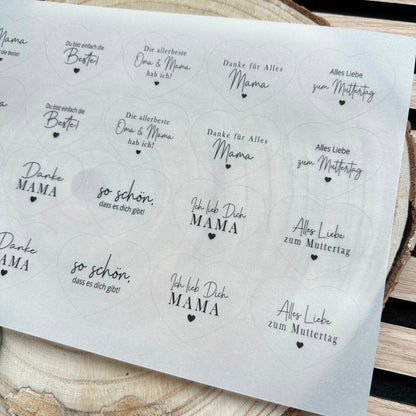 die Beste!
Du bist einfach die
Beste!
Die allerbeste
Oma & Mama
hab ich!
Danke für Alles
Mama
Alles Liebe
zum Muttertag
Du bist einfach die
Beste!
Die allerbeste
Oma & Mama
hab ich!
Danke für Alles
Mama
Alles Liebe
zum Muttertag
Danke
MAMA
so schön,
dass es dich gibt!
Ich lieb Dich
MAMA
Alles Liebe
zum Muttertag
Danke
MAMA
so schön,
dass es dich gibt!
Ich lieb Dich
MAMA
Alles Liebe
zum Muttertag